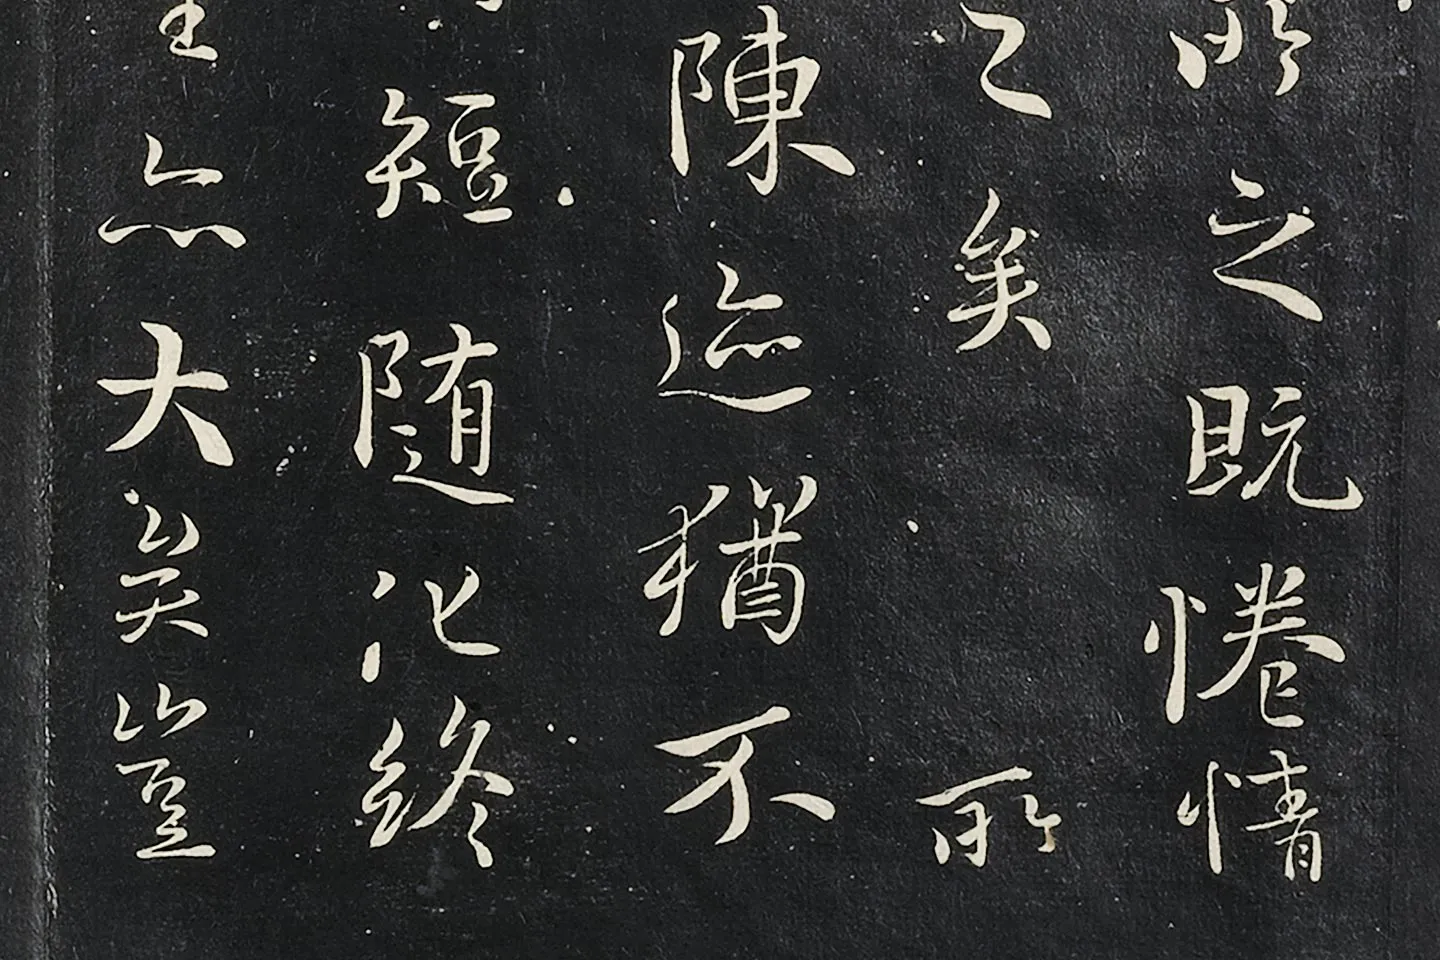 所之既惓情
之矣所
陳迹猶不
短随化終
生亦大矣豈